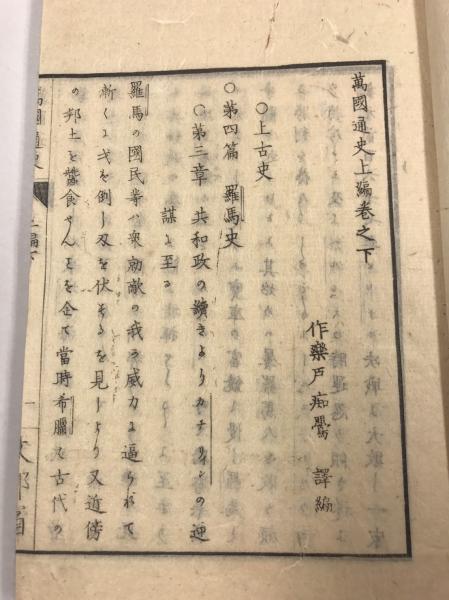 萬國通史上編卷之下
作樂戸痴鶯 譯編
○上古史
○第四篇 羅馬史
○第三章 共和政の續きよりカナリインの逆
謀に至る
羅馬の國民等ハ衆勍敵の我う威力に逼られて
漸くに戈を倒し刄を伏せるを見しより又近傍
の邦土を蠶食せんとを企て當時希臘又古代の
萬國通史
上編下
一
文部省